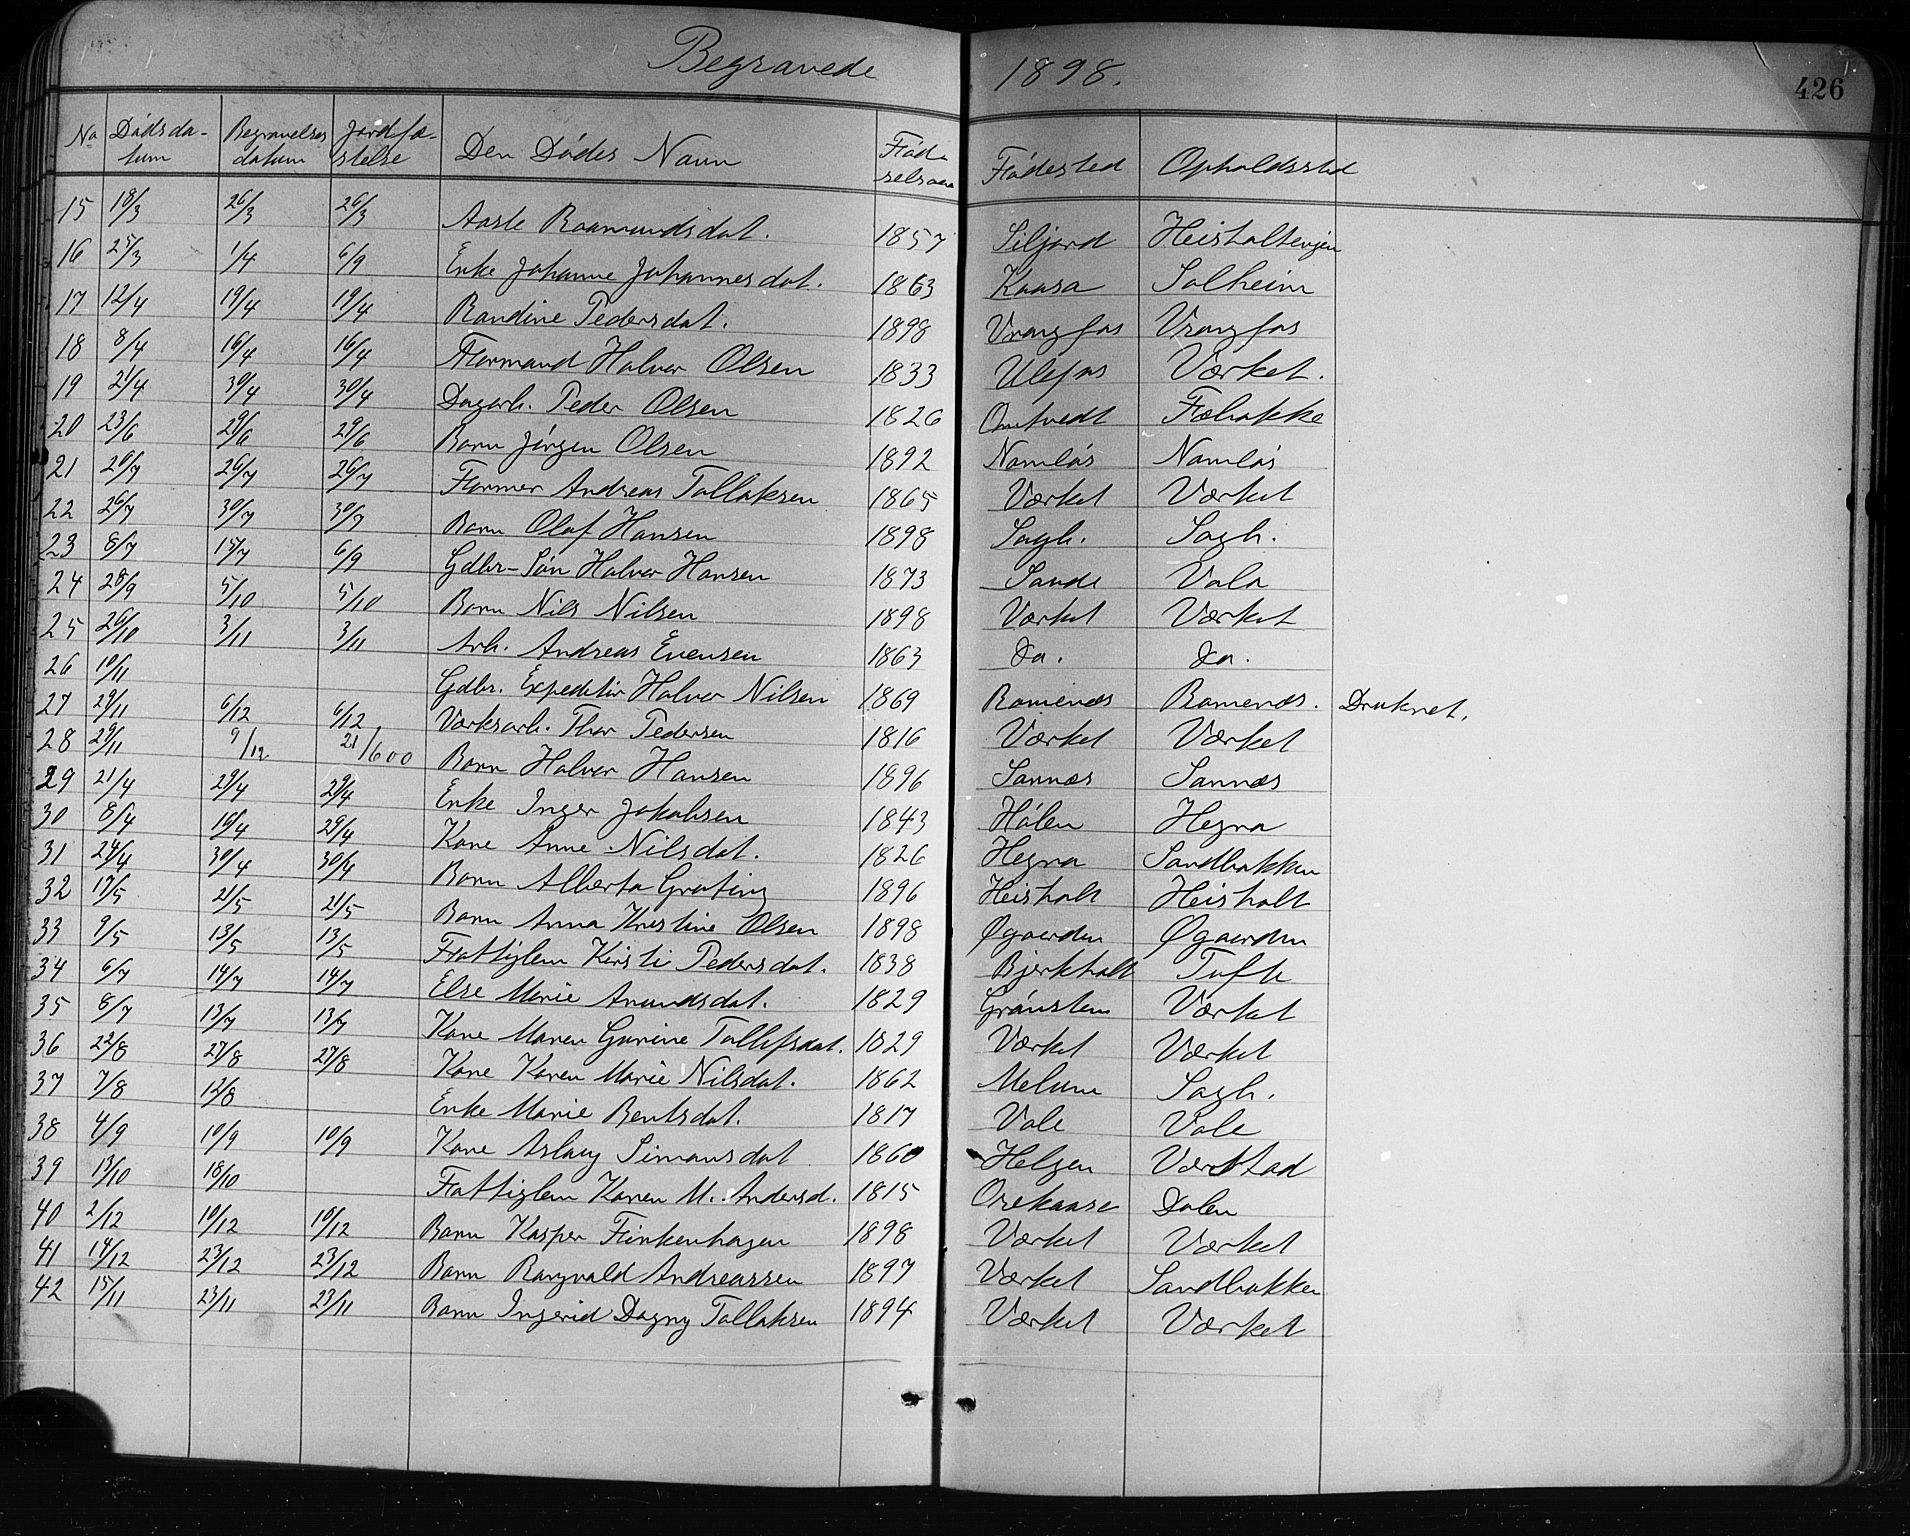 Begravede 1898.
426
No Dødsdatum Begravelsesdatum Jordfæstelse Den Dødes Navn Fødselsaar Fødested Opholdssted
15 18/3 26/3 26/3 Aasle Roamundsdat. 1857 Siljord Heisholteigen
16 25/3 1/4 6/9 Enke Johanne Johannesdat. 1863 Kaasa Solheim
17 12/4 19/4 19/4 Randine Pedersdat. 1898 Vrangfos Vrangfos
18 8/4 16/4 16/4 Formand Halvor Olsen 1833 Ulefos Værket.
19 21/4 30/4 30/4 Dagarb. Peder Olsen 1826 Omtvedt Fæbakke
20 23/6 29/6 29/6 Barn Jørgen Olsen 1892 Namløs Namløs
21 20/7 26/7 26/7 Former Andreas Tollaksen 1865 Værket Værket
22 26/7 30/7 30/7 Barn Olaf Hansen 1898 Sagb. Sagb.
23 8/7 15/7 6/9 Gdbr-Søn Halvor Hansen 1873 Sande Vala
24 28/9 5/10 5/10 Barn Nils Nilsen 1898 Værket Værket
25 26/10 3/11 3/11 Arb. Andreas Evensen 1863 Do. Do.
26 10/11 Gdbr. Expeditør Halvor Nilsen 1869 Romenæs Romenæs. Druknet.
27 29/11 6/12 6/12 Værksarb. Thor Pedersen 1816 Værket Værket
28 29/11 9/12 21/6 00 Barn Halvor Hansen 1896 Sannæs Sannæs
29 21/4 29/4 29/4 Enke Inger Jakobsen 1843 Hólen Hegna
30 8/4 16/4 29/4 Kone Anne Nilsdat. 1826 Hegna Sandbakken
31 24/4 30/4 30/4 Barn Alberta Grøting 1896 Heisholt Heisholt
32 17/5 21/5 21/5 Barn Anna Kristine Olsen 1898 Øgaarden Øgaarden
33 9/5 13/5 13/5 Fattiglem Kirsti Pedersdat. 1838 Bjerkholt Tufte
34 6/7 14/7 14/7 Else Marie Amundsdat. 1829 Grønsten Værket
35 8/7 13/7 13/7 Kone Maren Gurine Tollefsdat. 1829 Værket Værket
36 22/8 27/8 27/8 Kone Karen Marie Nilsdat. 1862 Melum Sagb.
37 7/8 12/8 Enke Marie Bentsdat. 1817 Vale Vale
38 4/9 10/9 10/9 Kone Aslaug Simonsdat 1860 Helgen Værstad
39 13/10 18/10 Fattiglem Karen M. Andersd. 1815 Orekaase Dalen
40 2/12 10/12 10/12 Barn Kasper Finkenhagen 1898 Værket Værket
41 14/12 23/12 23/12 Barn Rangvald Andreassen 1897 Værket Sandbakken
42 15/11 23/11 23/11 Barn Ingerid Dagny Tollaksen 1894 Værket Værket